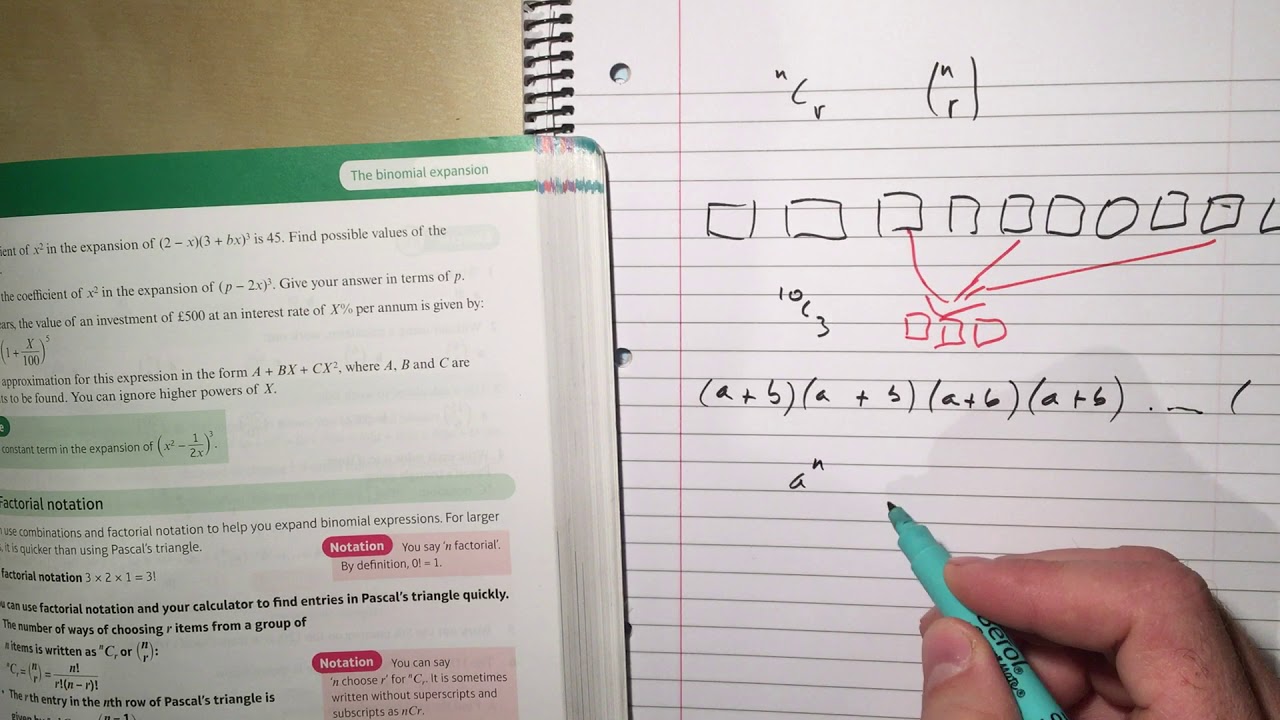 The binomial expansion
ient of x² in the expansion of (2 − x)(3 + bx)³ is 45. Find possible values of the
the coefficient of x² in the expansion of (p − 2x)³. Give your answer in terms of p.
ars, the value of an investment of £500 at an interest rate of X% per annum is given by:
(1 + X/100)⁵
approximation for this expression in the form A + BX + CX², where A, B and C are
ts to be found. You can ignore higher powers of X.
e
constant term in the expansion of (x² − 1/2x)³.
Factorial notation
use combinations and factorial notation to help you expand binomial expressions. For larger
, it is quicker than using Pascal's triangle.
Notation You say 'n factorial'.
By definition, 0! = 1.
factorial notation 3 × 2 × 1 = 3!
u can use factorial notation and your calculator to find entries in Pascal's triangle quickly.
The number of ways of choosing r items from a group of
n items is written as ⁿCᵣ or (n r):
ⁿCᵣ = (n r) = n!/r!(n − r)!
• The rth entry in the nth row of Pascal's triangle is
given by
(n − 1
Notation You can say
'n choose r' for ⁿCᵣ. It is sometimes
written without superscripts and
subscripts as nCr.
ⁿCᵣ (n r)
¹⁰C₃
(a + b)(a + b)(a+b)(a+b) . _ (
aⁿ
Berol